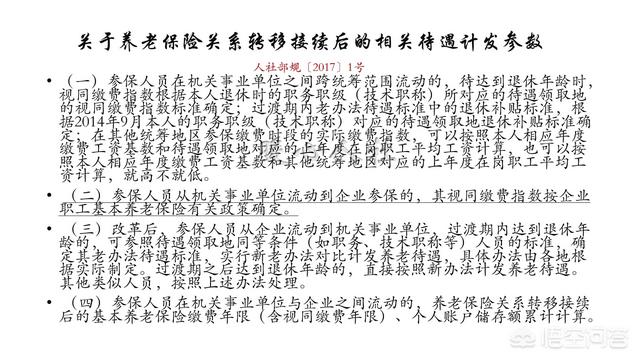 关于养老保险关系转移接续后的相关待遇计发参数
人社部规〔2017〕1号
• （一）参保人员在机关事业单位之间跨统筹范围流动的，待达到退休年龄时，
视同缴费指数根据本人退休时的职务职级（技术职称）所对应的待遇领取地
的视同缴费指数标准确定；过渡期内老办法待遇标准中的退休补贴标准，根
据2014年9月本人的职务职级（技术职称）对应的待遇领取地退休补贴标准确
定；在其他统筹地区参保缴费时段的实际缴费指数，可以按照本人相应年度
缴费工资基数和待遇领取地对应的上年度在岗职工平均工资计算，也可以按
照本人相应年度缴费工资基数和其他统筹地区对应的上年度在岗职工平均工
资计算，就高不就低。
• （二）参保人员从机关事业单位流动到企业参保的，其视同缴费指数按企业
职工基本养老保险有关政策确定。
• （三）改革后，参保人员从企业流动到机关事业单位，过渡期内达到退休年
龄的，可参照待遇领取地同等条件（如职务、技术职称等）人员的标准，确
定其老办法待遇标准，实行新老办法对比计发养老待遇，具体办法由各地根
据实际制定。过渡期之后达到退休年龄的，直接按照新办法计发养老待遇。
其他类似人员，按照上述办法处理。
• （四）参保人员在机关事业单位与企业之间流动的，养老保险关系转移接续
后的基本养老保险缴费年限（含视同缴费年限）、个人账户储存额累计计算。
悟空问答